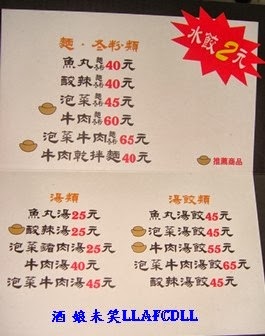 水餃2元
麵·冬粉類
魚丸麵冬粉40元
酸辣麵冬粉40元
泡菜麵冬粉45元
牛肉麵冬粉60元
泡菜牛肉麵冬粉65元
牛肉乾拌麵40元
推薦商品
湯類
魚丸湯25元
酸辣湯25元
泡菜豬肉湯25元
牛肉湯40元
泡菜湯45元
湯餃類
魚丸湯餃45元
酸辣湯餃45元
泡菜湯餃45元
牛肉湯餃55元
泡菜牛肉湯餃65元
豬肉湯餃45元
酒 娘未笑LLAFCDLL